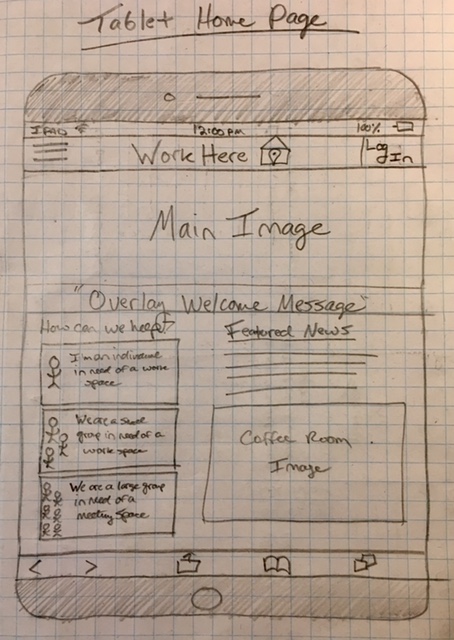 Tablet Home Page
IPAD 12:00 PM 100%
Work Here
Log In
Main Image
"Overlay Welcome Message"
How can we help?
I'm an individual
in need of a work
space
We are a small
group in need of a
work space
We are a large group
in need of a
meeting space
Featured News
Coffee Room
Image